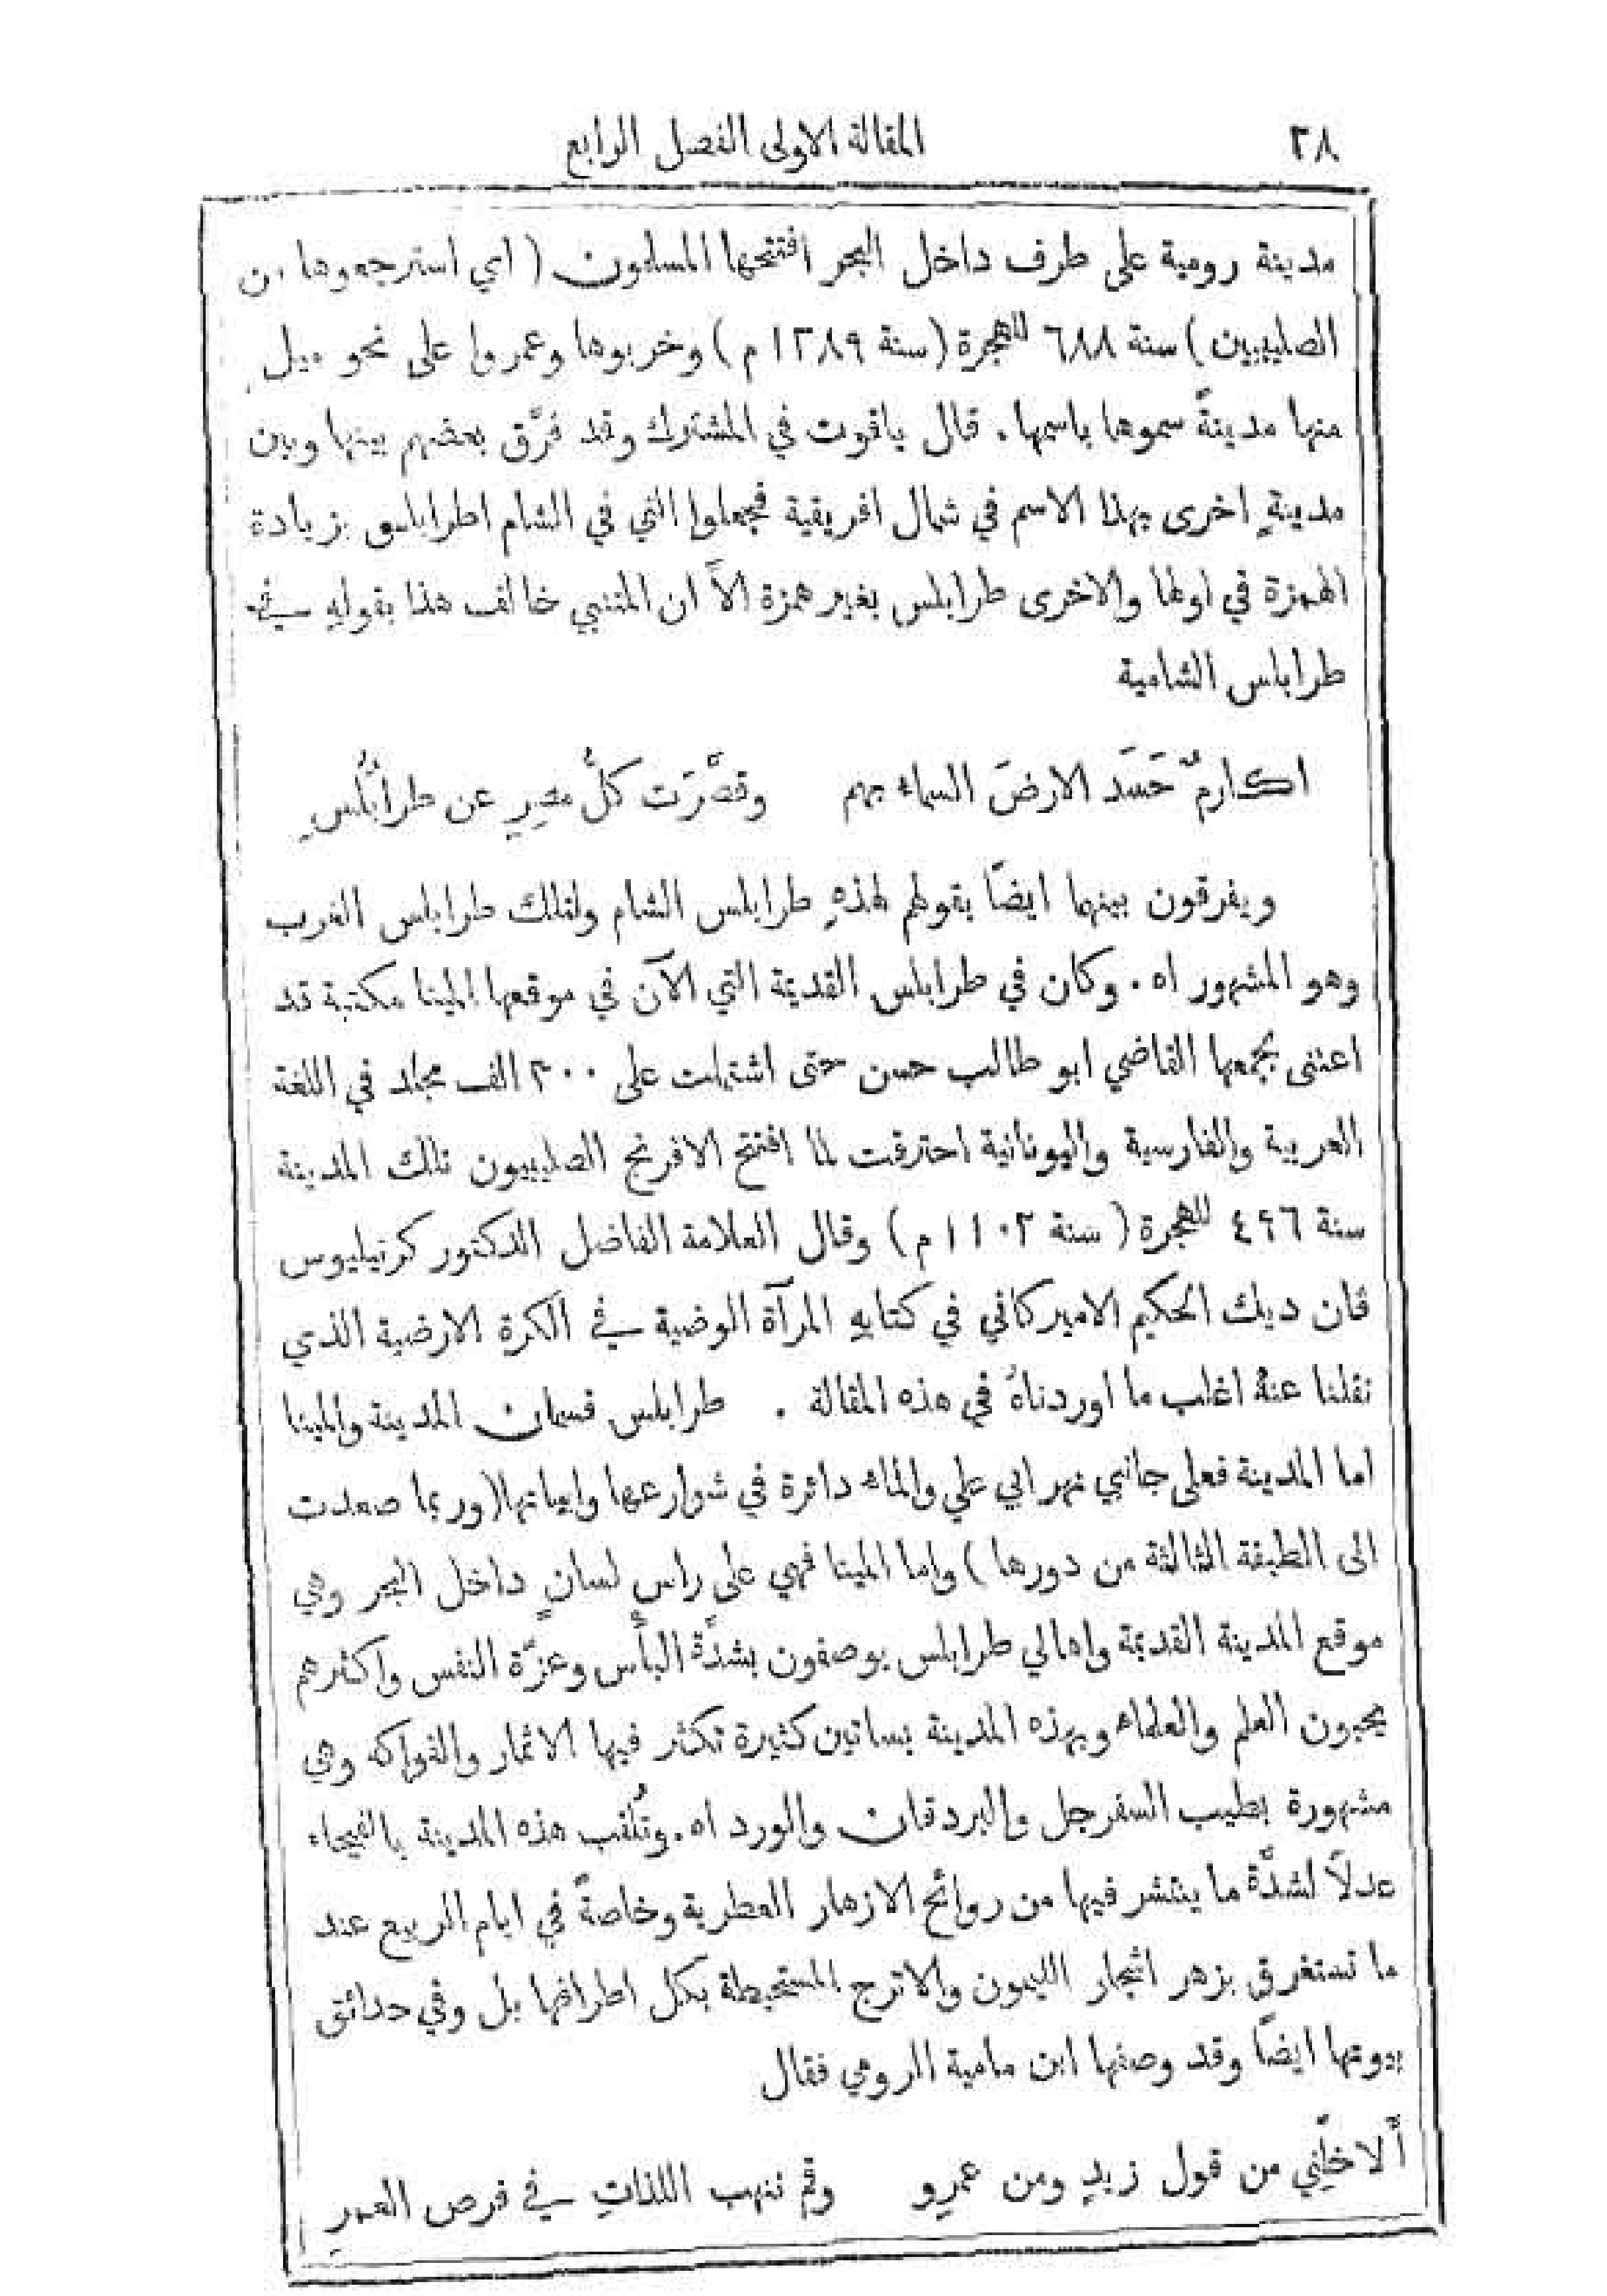 ٢٨ المقالة الاولى الفصل الرابع
مدينة رومية على طرف داخل البحر افتتحها المسلمون ( اي استرجعوها من
الصليبيين ) سنة ٦٨٨ للهجرة ( سنة ١٢٨٩ م ) وخربوها وعمروا على نحو ميل
منها مدينةً سموها باسمها . قال ياقوت في المشترك وقد فرَّق بعضهم بينها وبين
مدينةٍ اخرى بهذا الاسم في شمال افريقية فجعلوا التي في الشام اطرابلس بزيادة
الهمزة في اولها والاخرى طرابلس بغير همزة الاَّ ان المتنبي خالف هذا بقولهِ في
طرابلس الشامية
اكارمٌ حَسَد الارضَ السماء بهم وقصَّرَت كلُّ مصرٍ عن طرابُلُسِ
ويفرقون بينهما ايضًا بقولهم لهذهِ طرابلس الشام ولتلك طرابلس الغرب
وهو المشهور اه . وكان في طرابلس القديمة التي الآن في موقعها المينا مكتبة قد
اعتنى بجمعها القاضي ابو طالب حسن حتى اشتملت على ٣٠٠ الف مجلد في اللغة
العربية والفارسية واليونانية احترقت لما افتتح الافرنج الصليبيون تلك المدينة
سنة ٤٩٦ للهجرة ( سنة ١١٠٢ م ) وقال العلامة الفاضل الدكتور كرنيليوس
فان ديك الحكيم الاميركاني في كتابهِ المرآة الوضية في الكرة الارضية الذي
نقلنا عنهُ اغلب ما اوردناهُ في هذه المقالة . طرابلس قسمان المدينة والمينا
اما المدينة فعلى جانبي نهر ابي علي والماء دائرة في شوارعها وابياتها ( وربما صعدت
الى الطبقة الثالثة من دورها ) واما المينا فهي على راس لسانٍ داخل البحر وهي
موقع المدينة القديمة واهالي طرابلس يوصفون بشدَّة البأْس وعزَّة النفس واكثرهم
يحبون العلم والعلماء وبهذه المدينة بساتين كثيرة تكثر فيها الاثمار والفواكه وهي
مشهورة بطيب السفرجل والبردقان والورد اه . وتُلقب هذه المدينة بالفيحاء
عدلاً لشدَّة ما ينتشر فيها من روائح الازهار العطرية وخاصةً في ايام الربيع عند
ما تستغرق بزهر اشجار الليمون والاترج المستحيطة بكل اطرافها بل وفي حدائق
بيوتها ايضًا وقد وصفها ابن مامية الرومي فقال
أَلا خلِّني من قول زيدٍ ومن عمرِو وقم ننهب اللذاتِ في فرص العمرِ